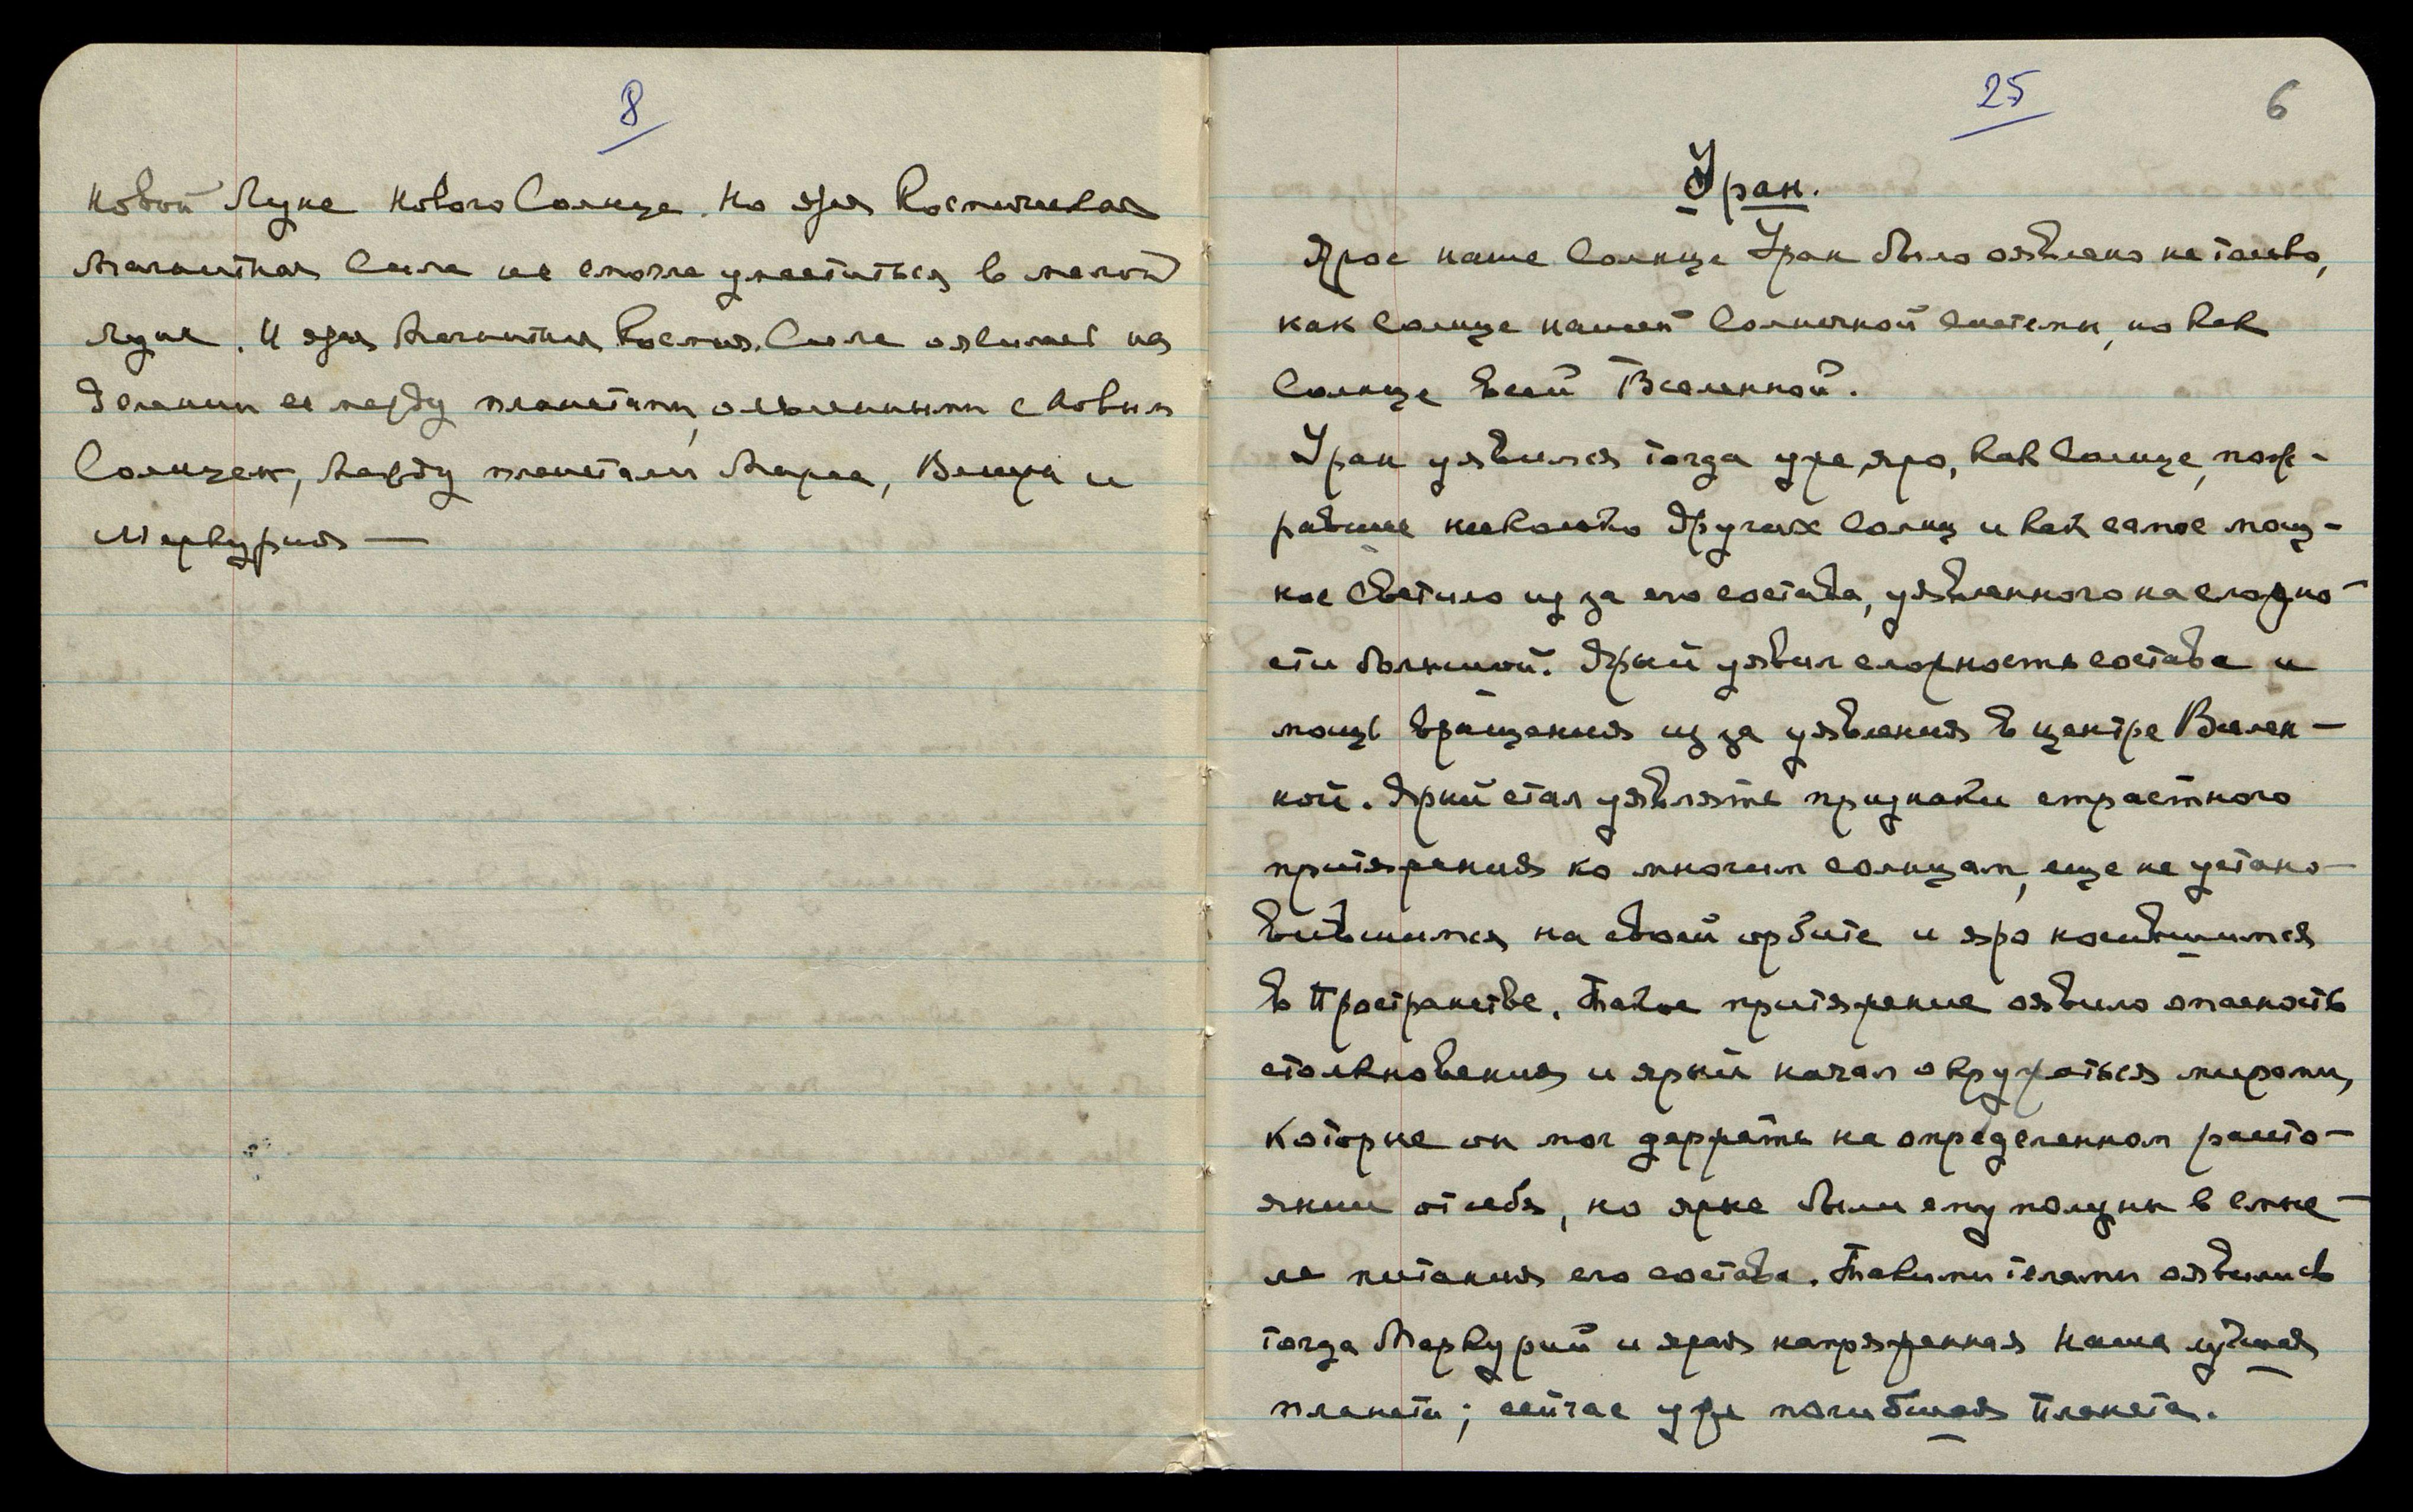 8
новой Луне нового Солнца. Но эта Космическая
Магнитная Сила не смогла уместиться в малой
Луне. И эта Магнитная Космич. Сила
делении ее между планетами, с новым
Солнцем, между планетами Марса, Венеры и
Меркурия —
25
6
Уран.
Ярое наше Солнце Уран было оявлено не только,
как Солнце нашей Солнечной системы, но как
Солнце всей Вселенной.
Уран уявился тогда уже, яро, как Солнце, пож-
равшее несколько других Солнц и как самое мощ-
ное Светило из за его состава, уявленного на сложно-
сти большой. Ярый уявил сложность состава и
мощь вращения из за уявления в центре Вселен-
ной. Ярый стал уявлять признаки страстного
притяжения ко многим солнцам, еще не устано-
вившимся на своей орбите и яро носившимся
в Пространстве. Такое притяжение оявило опасность
столкновения и ярый начал окружаться мирами,
которые он мог держать на определенном рассто-
янии от себя, но ярые были ему полезны в смыс-
ле питания его состава. Такими телами оявились
тогда Меркурий и ярая напряженная наша
планета; сейчас уже погибшая Планета.